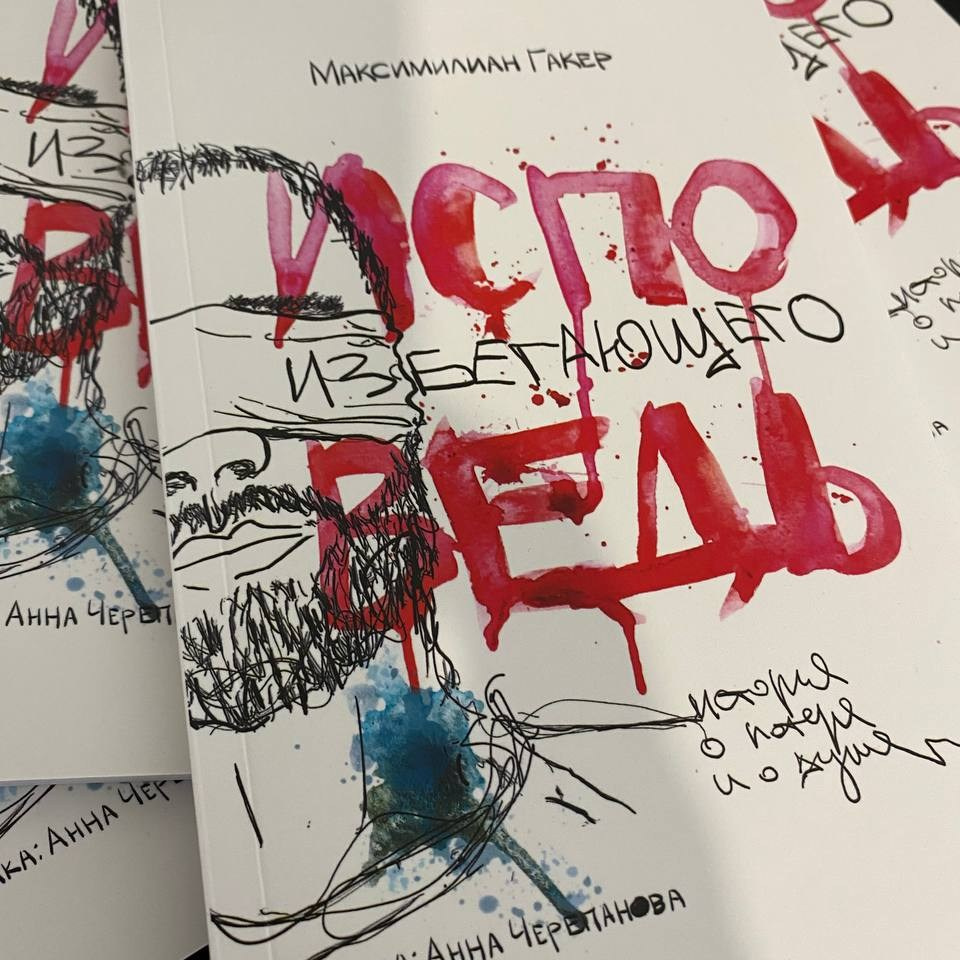 Максимилиан Гакер
ИСПО
ИЗБЕГАЮЩЕГО
ВЕДЬ
история
о потере
и о душе
А: АННА ЧЕРЕПАНОВА
И
ИЗ
В
АННА ЧЕРЕП
КА: АННА ЧЕР
ЕГО
Ь